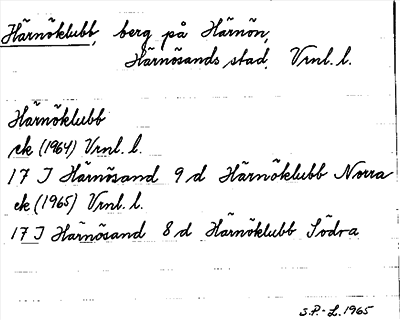 Härnöklubb, berg på Härnön,
Härnösands stad. Vrnl. l.
Härnöklubb
ek (1964) Vrnl. l.
17 I Härnösand 9 d Härnöklubb Norra
ek (1965) Vrnl. l.
17 I Härnösand 8 d Härnöklubb Södra
S.P.-L. 1965